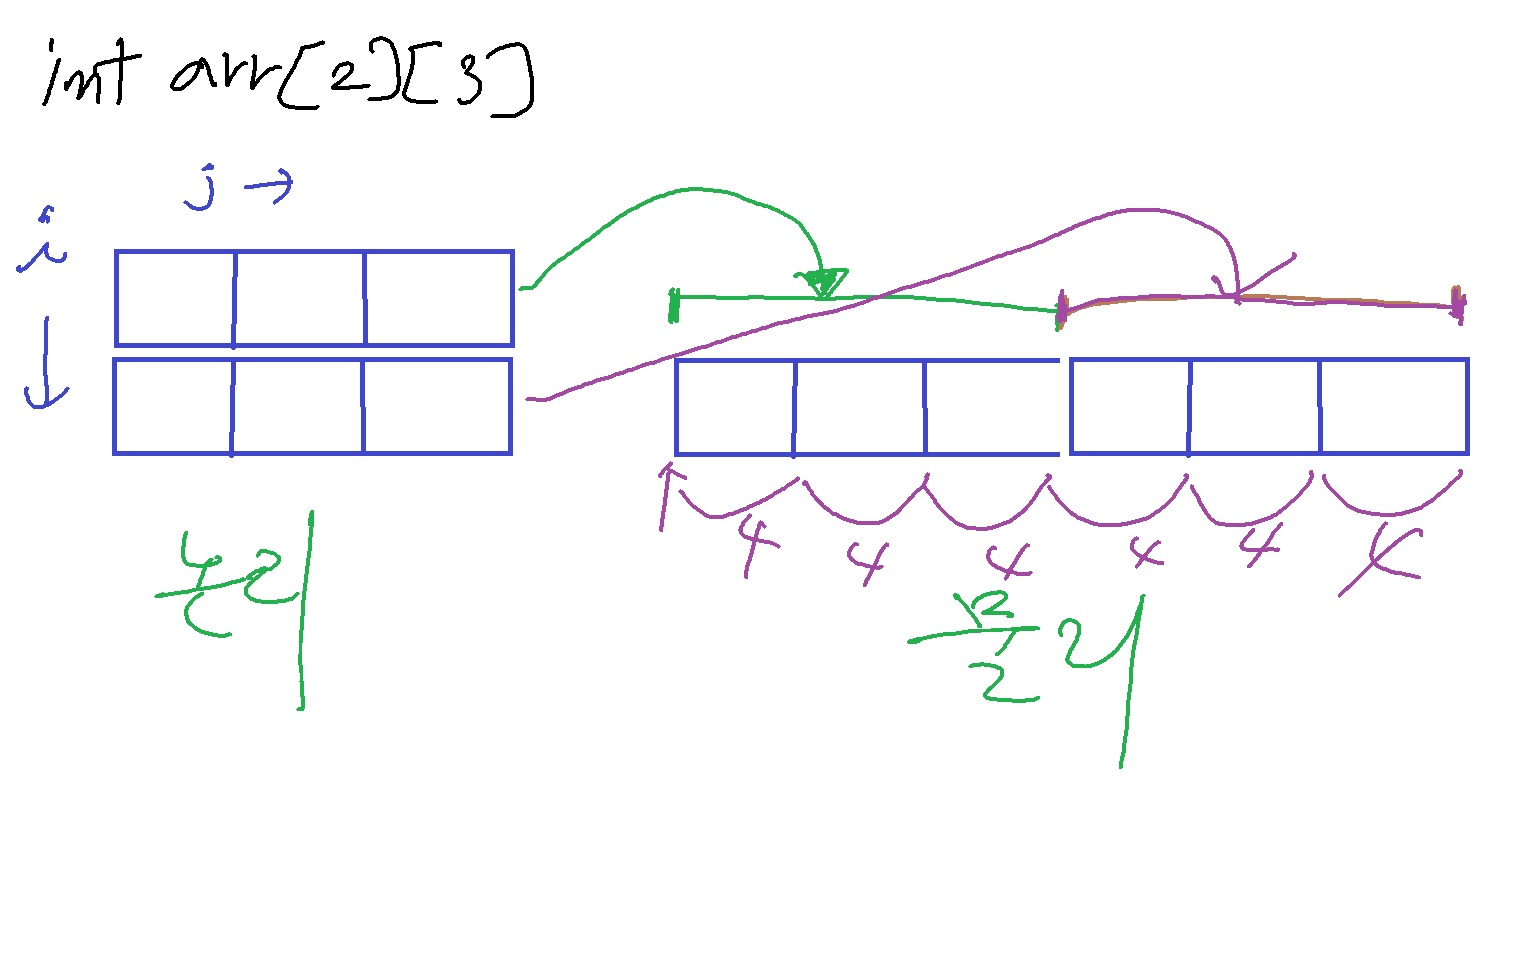 int arr[2][3]
j →
i
4 4 4 4 4 4
논리
물리